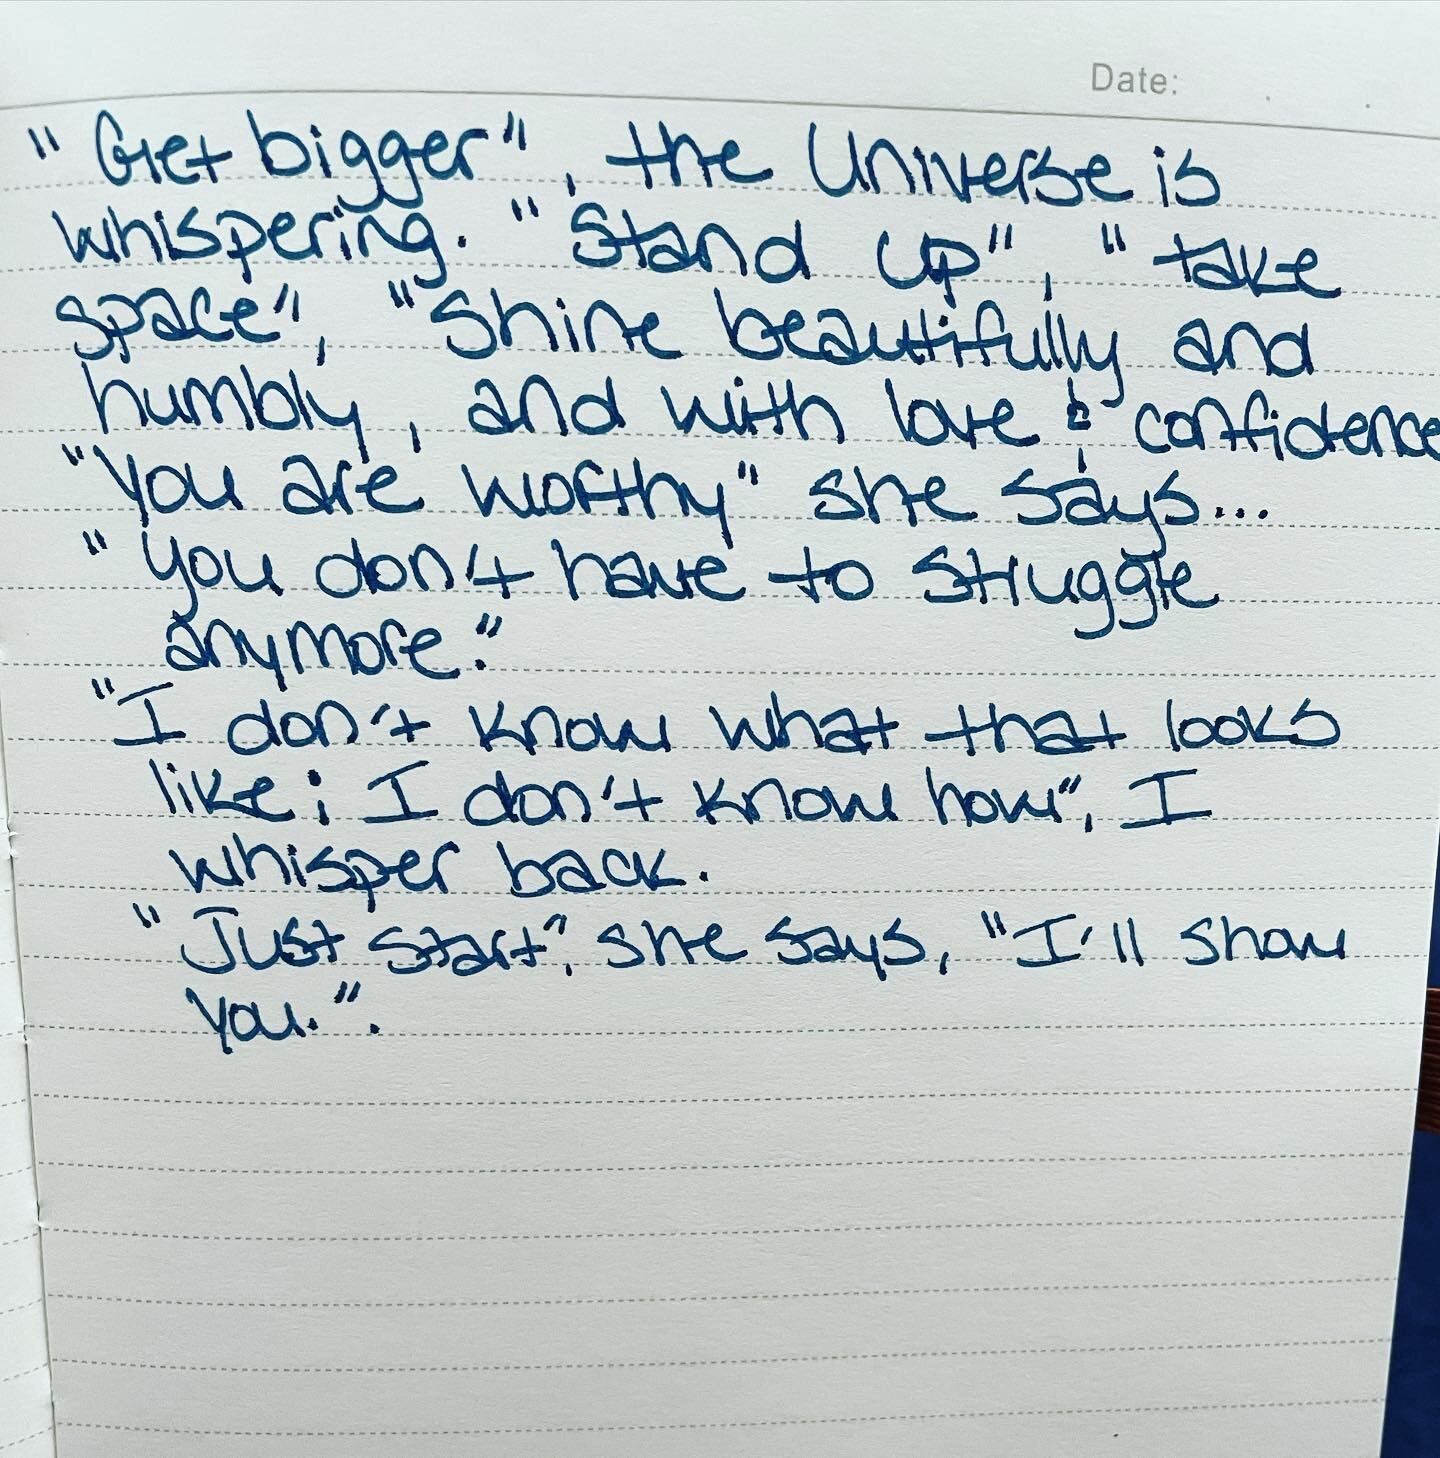 Date:
"Get bigger", the Universe is
whispering. "Stand up", "take
space", "Shine beautifully and
humbly, and with love & confidence
"You are worthy" she says...
"you don't have to struggle
anymore."
"I don't know what that looks
like; I don't know how", I
whisper back.
"Just start", she says, "I'll show
you.".